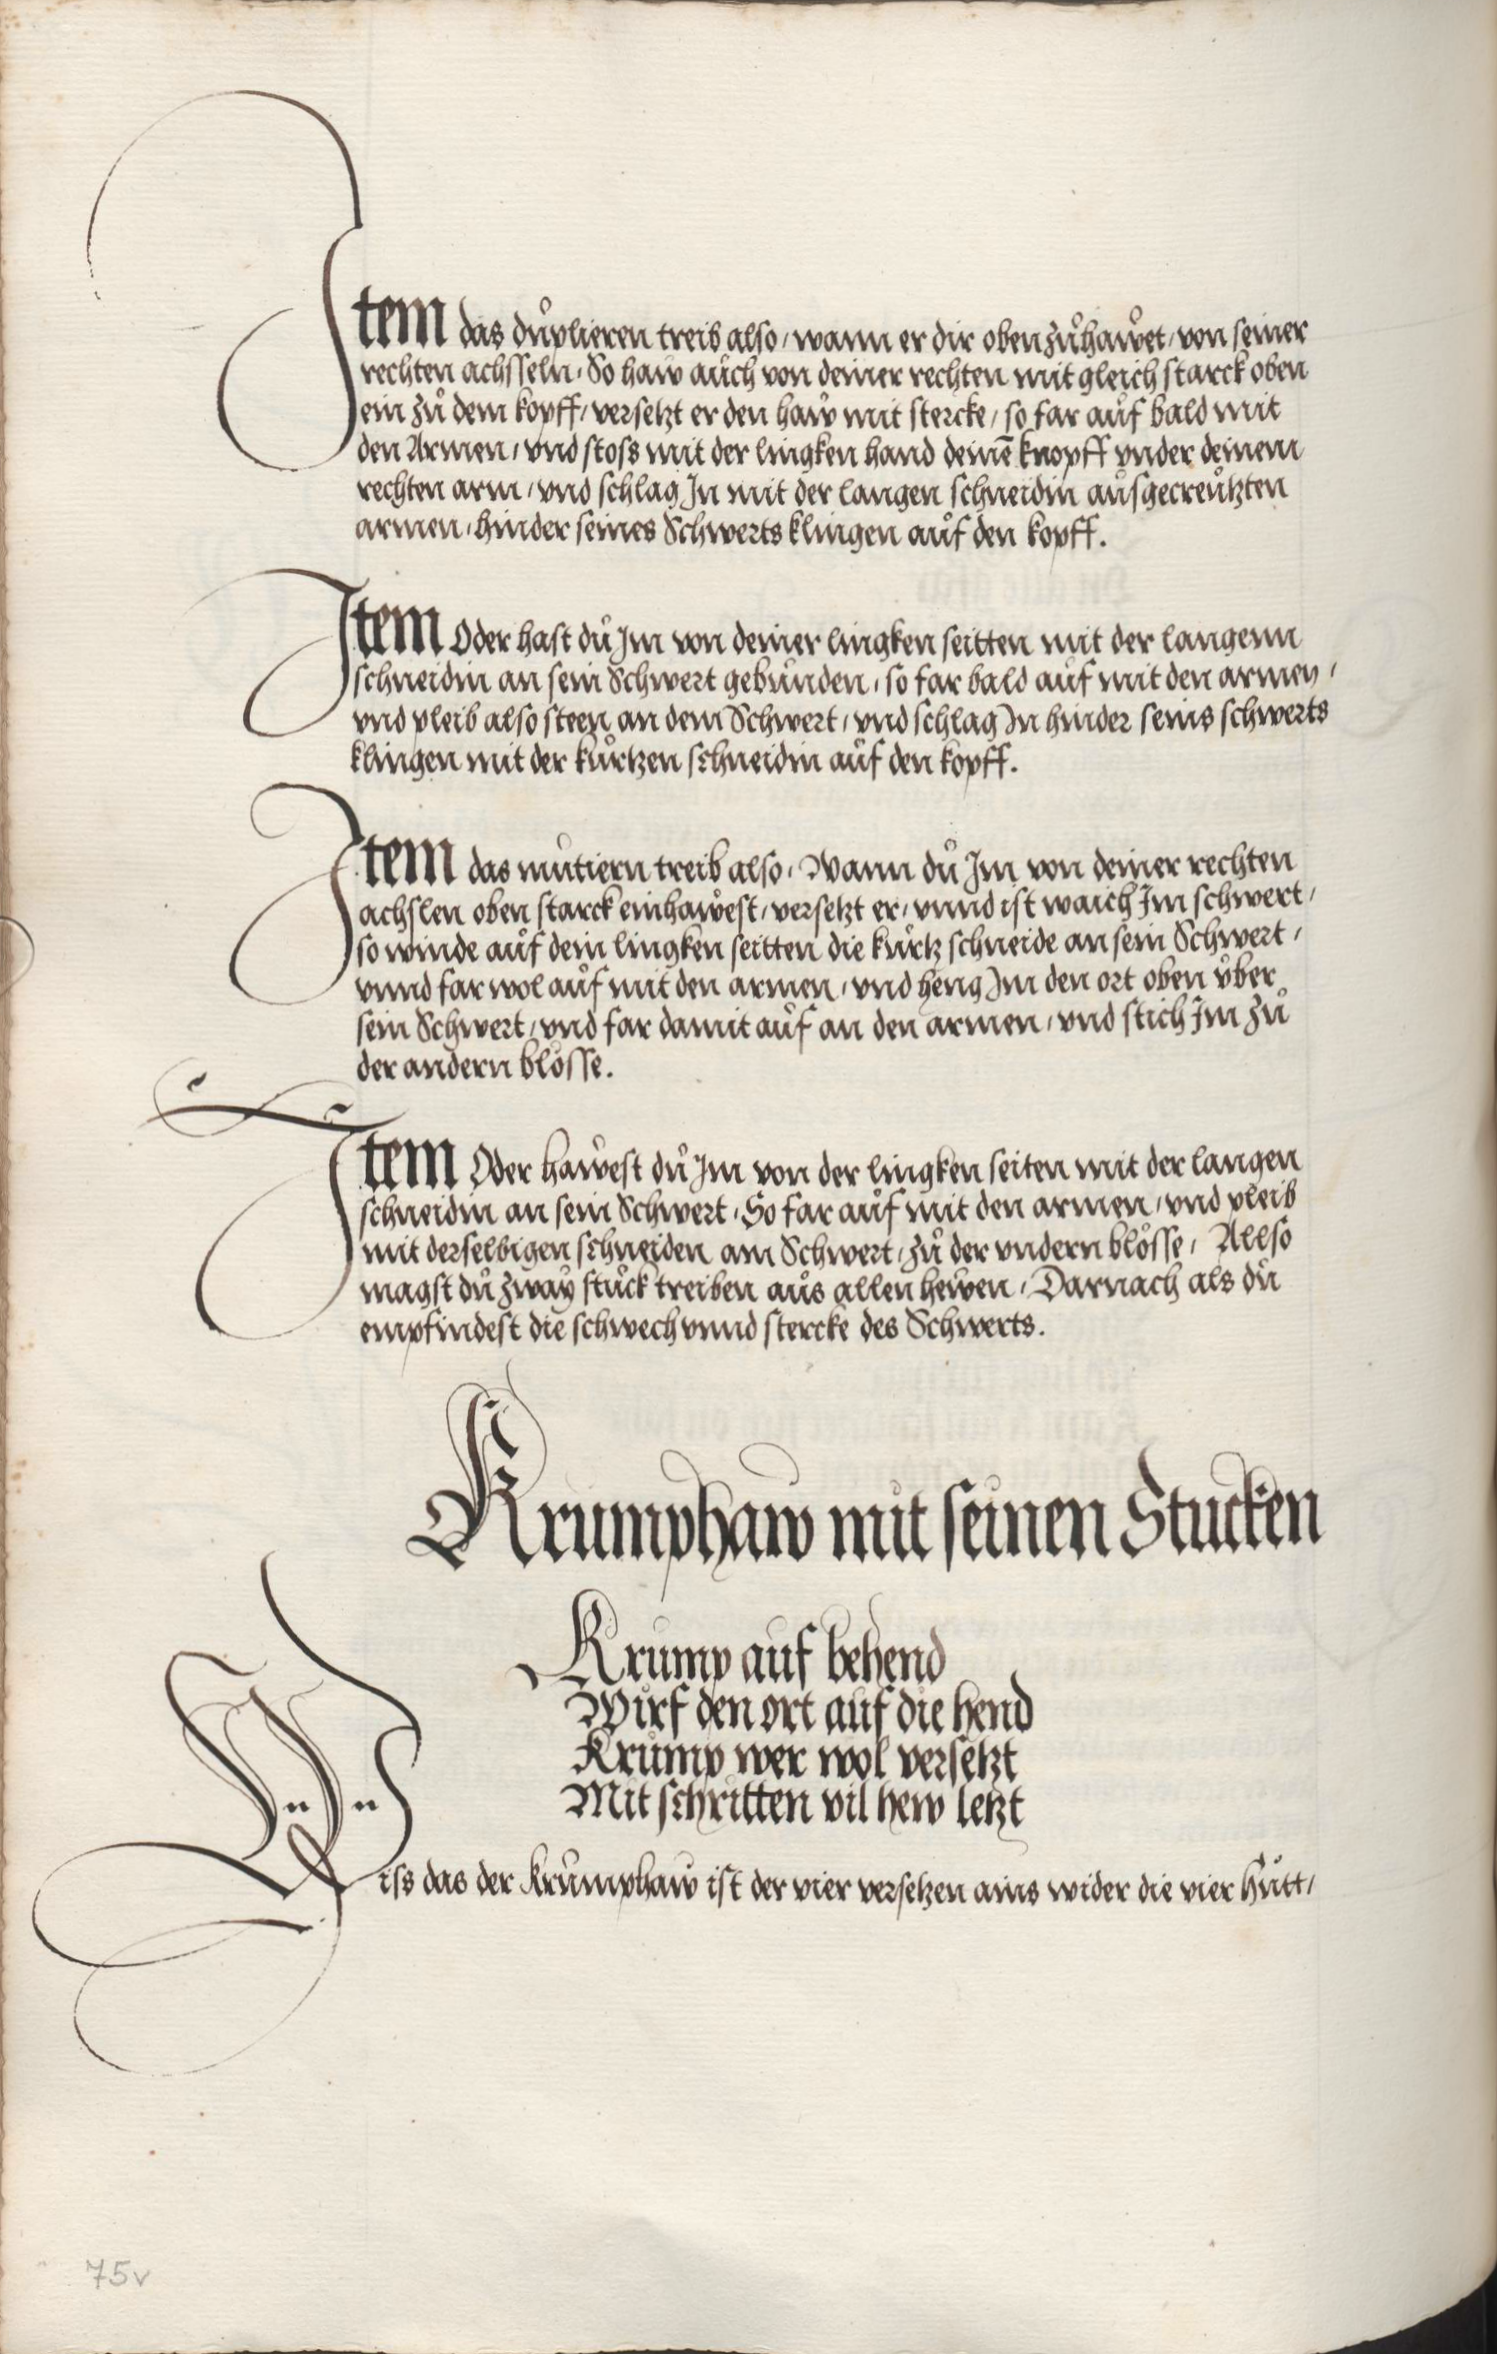 Item das duplieren treib also / wann er dir oben zůhawet / von seiner
rechten achsseln / So haw auch von deiner rechten mit gleich starck oben
ein zů dem kopff / versetzt er den haw mit stercke / so far auf bald mit
den Armen / vnd stoss mit der lingken hand deinē knopff vnder deinem
rechten arm / vnd schlag In mit der langen schneidin ausgecreutzten
armen / hinder seines Schwerts klingen auf den kopff.
Item Oder hast dů Im von deiner lingken seitten mit der langenn
schneidin an sein Schwert gebunden / so far bald auf mit den armen /
vnd pleib also steen an dem Schwert / vnd schlag In hinder seins schwerts
klingen mit der kurtzen schneidin auf den kopff.
Item das mutiern treib also / Wann dů Im von deiner rechten
achslen oben starck einhawest / versetzt er / vnnd ist waich Im schwert /
so winde auf dein lingken seitten die kurtz schneide an sein Schwert /
vnnd far wol auf mit den armen / vnd heng Im den ort oben über
sein Schwert / vnd far damit auf an den armen / vnd stich Im zů
der andern blösse.
Item Oder hawest dů Im von der lingken seiten mit der langen
schneidin an sein Schwert / So far auf mit den armen / vnd pleib
mit derselbigen schneiden am Schwert / zů der vndern blösse / Allso
magst dů zway stuck treiben aus allen hewen / Darnach als dů
empfindest die schwech vnnd stercke des Schwerts.
Krumphaw mit seinen Stucken
Krump auf behend
Wirf den ort auf die hend
Krump wer wol versetzt
Mit schritten vil hew letzt
Wiss das der Krumphaw ist der vier versetzen ains wider die vier hütt /
75v